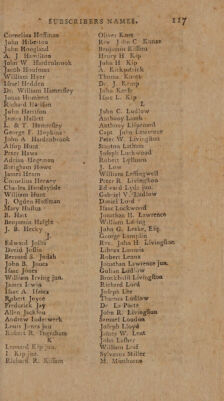 SUBSCRIBERS NAMES. 117
Cornelius Hoffman
John Hiberton
John Hoogland
A. J. Hamilton
John W Hardenbrook
Jacob Hoofman
William Hyer
Israel Hedden
Dr. William Hamersley
Jonas Humbert
Richard Harison
John Harrison
James Hallett
L. & T. Hamersley
George F. Hopkins
John A Hardenbrook
Alsop Hunt
Peter Haws
Adrian Hegeman
Bingham Howe
James Hearn
Cornelius Heeney
Charles Hardcyde
William Hunt
J. Ogden Hoffman
Mary Huffus
B. Hait
Benjamin Haight
J. B. Hecky
J.
Edward Jollie
David Joslin
Bernard S. Judah
John B. Jones
Isaac Jones
William Irving jun.
James Irwin
Isaac A. Isaacs
Robert Joyce
Frederick Jay
Allen Jackson
Andrew Inderwerk
Lewis Jones jun
Robert R. Ingraham
K
Leonard Kip jun.
I Kip jun.
Richard R. Kissam
Oliver Kane
Rev John C Kunze
Benjamin Kissam
Henry H Kip
John H Kip
A Kirkpatrick
Thomas
Dr. J. Kemp
John Keese
Isaac L. Kip
L
John C. Ludlow
Anthony Lamb
Anthony Lispenard
Capt John Lawrence
Peter W. Livingston
Stanton Latham
Joseph Lockwood
Robert Lylburn
J. Low
William Leffingwell
Peter R. Livingston
Edward Lyde jun.
Gabriel V. Ludlow
Daniel Lord
Isaac Lockwood
Jonathan H. Lawrence
William Loring
John G. Leake, Esq.
George Lumplin
Rev. John H Livingston
Libras Loomis
Robert Lenox
Jonathan Lawrence jun.
Gulian Ludlow
Brockholst Livingston
Richard Lord
Joseph Lee
Thomas Ludlow
De La Porte
John R. Livingston
Samuel Loudon
Joseph Lloyd
James W. Lent
John Lasher
William Leaf
Sylvanus Miller
M. Munhorne